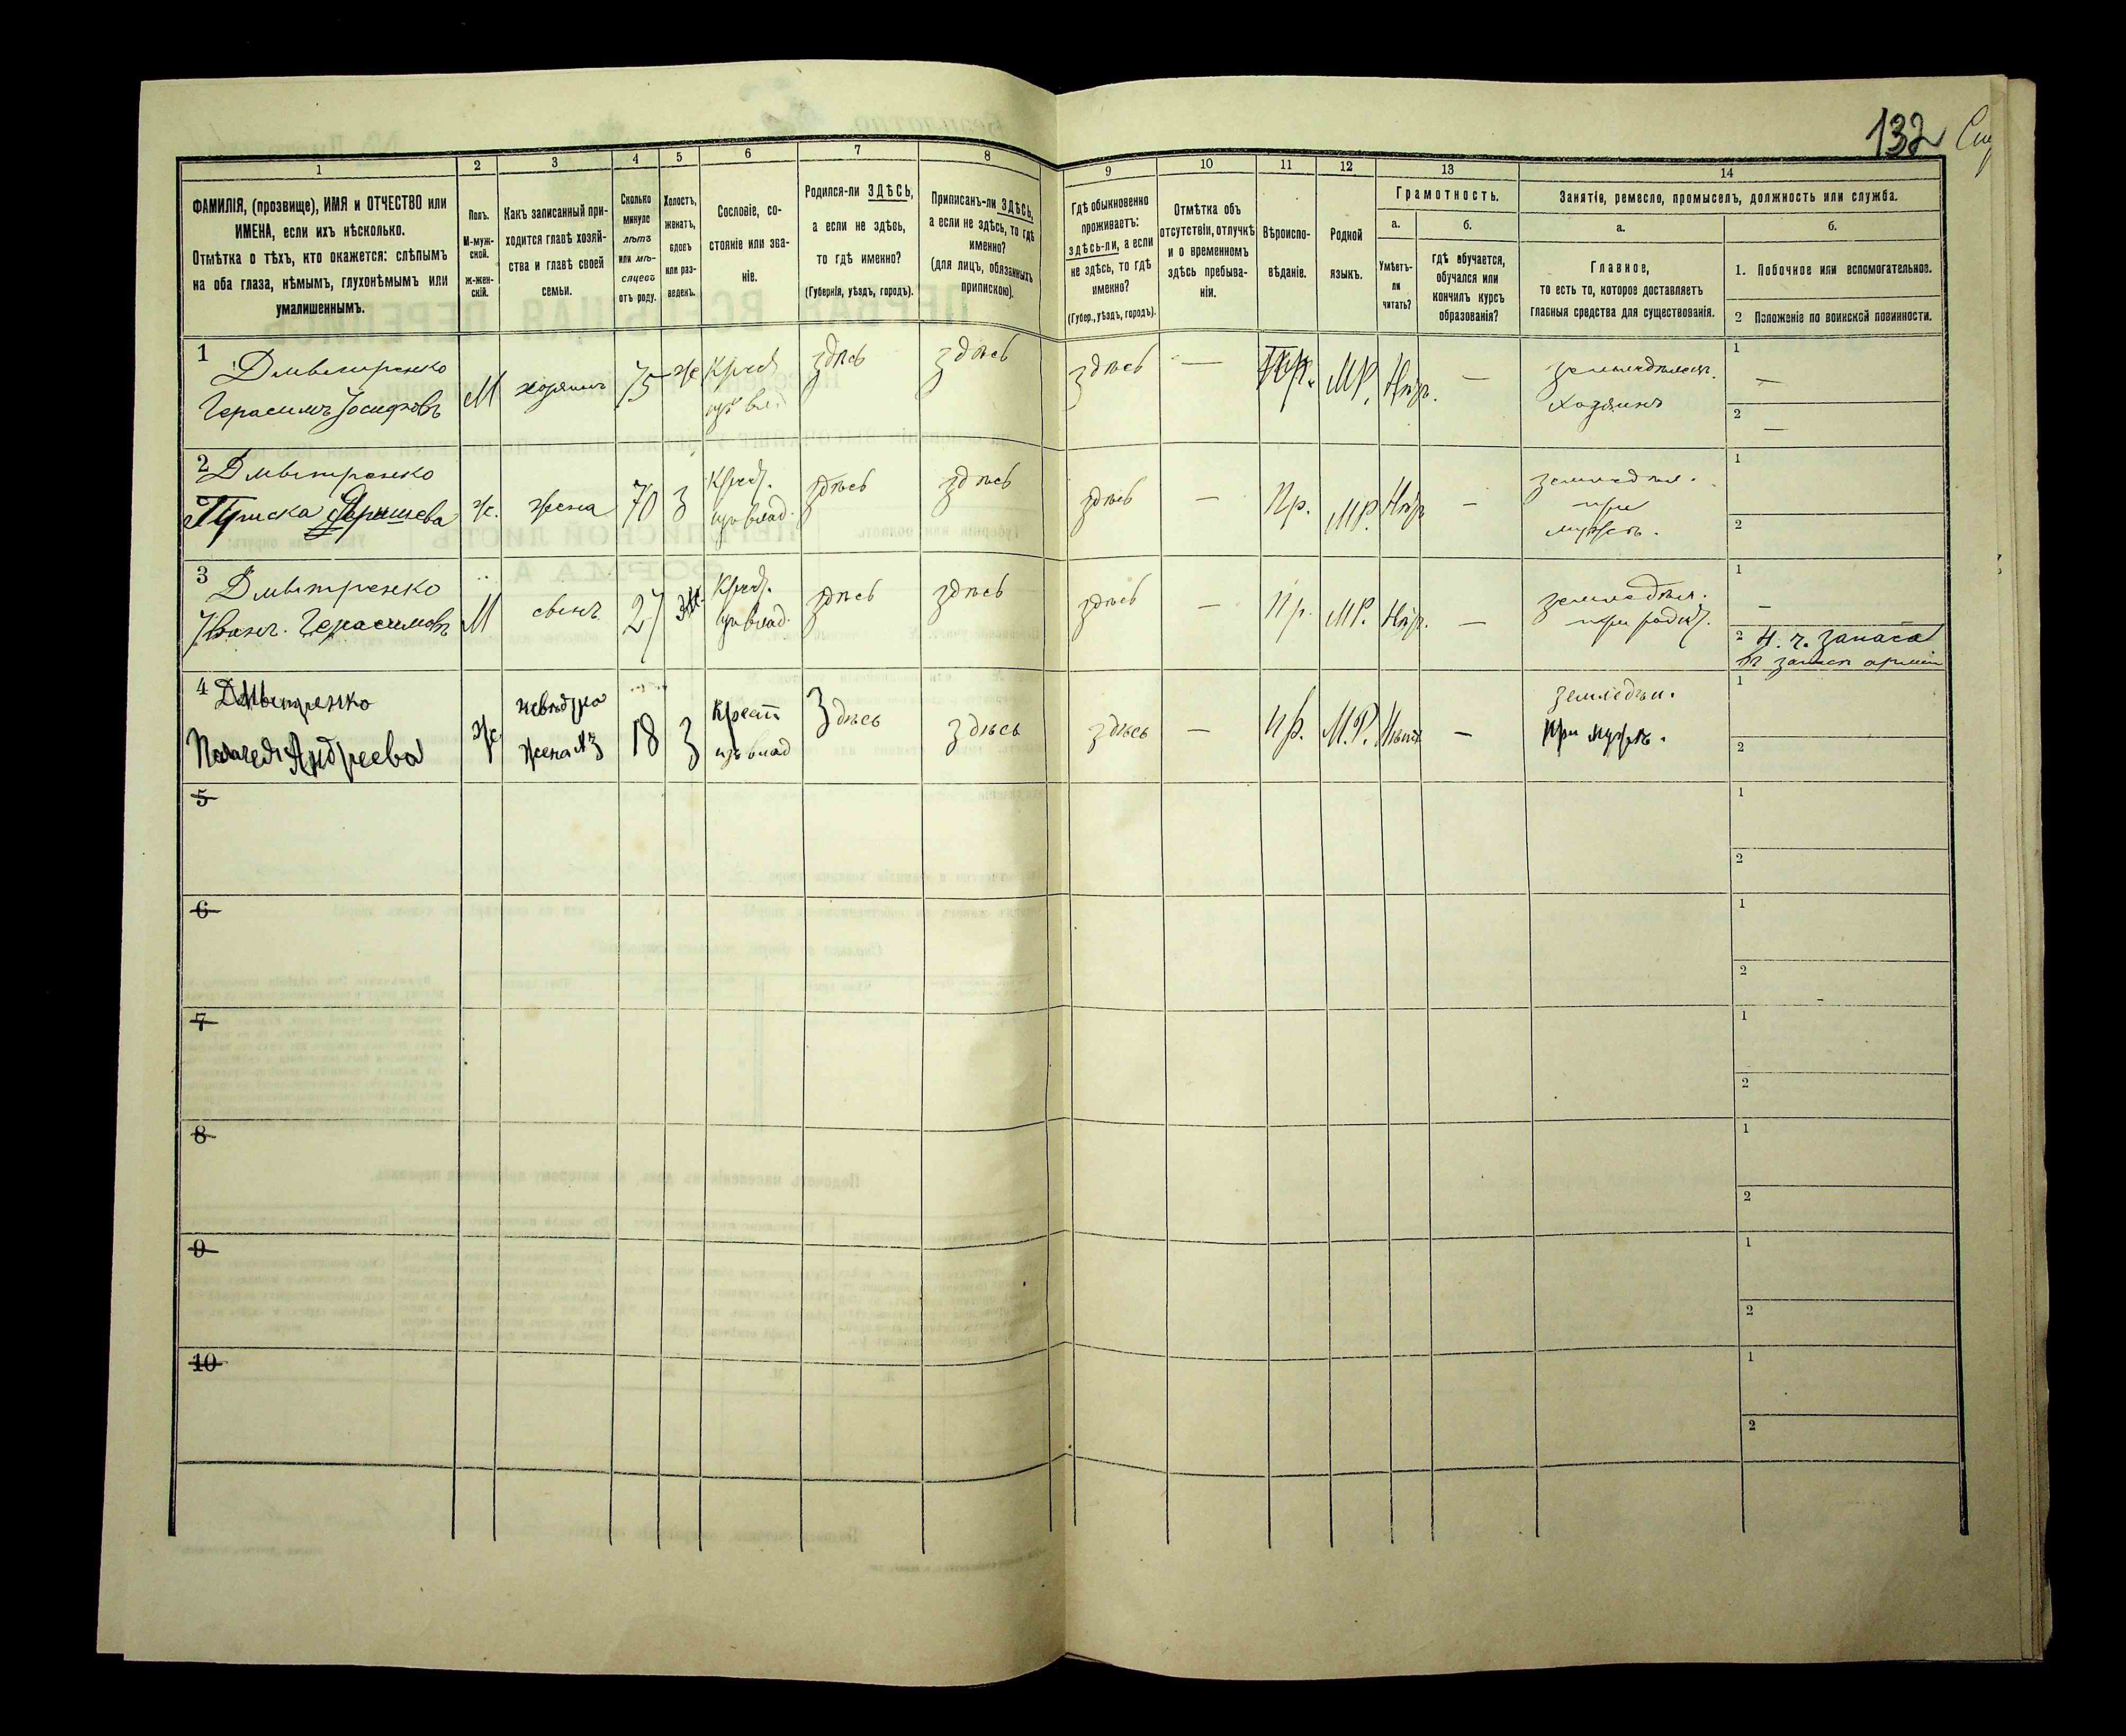 132
1
2
3
4
5
6
7
8
9
10
11
12
13
14
ФАМИЛІЯ, (прозвище), ИМЯ и ОТЧЕСТВО или
ИМЕНА, если ихъ нѣсколько.
Отмѣтка о тѣхъ, кто окажется: слѣпымъ
на оба глаза, нѣмымъ, глухонѣмымъ или
умалишеннымъ.
Полъ.
М-муж-
ской.
ж-жен-
скій.
Какъ записанный при-
ходится главѣ хозяй-
ства и главѣ своей
семьи.
Сколько
минуло
лѣтъ
или мѣ-
сяцевъ
отъ роду.
Холостъ,
женатъ,
вдовъ
или раз-
веденъ.
Сословіе, со-
стояніе или зва-
ніе.
Родился-ли ЗДѢСЬ,
а если не здѣсь,
то гдѣ именно?
(Губернія, уѣздъ, городъ).
Приписанъ-ли ЗДѢСЬ,
а если не здѣсь, то гдѣ
именно?
(для лицъ, обязанныхъ
припискою).
Гдѣ обыкновенно
проживаетъ:
здѣсь-ли, а если
не здѣсь, то гдѣ
именно?
(Губер., уѣздъ, городъ).
Отмѣтка объ
отсутствіи, отлучкѣ
и о временномъ
здѣсь пребыва-
ніи.
Вѣроиспо-
вѣданіе.
Родной
языкъ.
Грамотность.
а.
Умѣетъ-
ли
читать?
б.
гдѣ обучается,
обучался или
кончилъ курсъ
образованія?
Занятіе, ремесло, промыселъ, должность или служба.
а.
Главное,
то есть то, которое доставляетъ
главныя средства для существованія.
б.
1. Побочное или вспомогательное.
2 Положеніе по воинской повинности.
1
Дмытренко
Герасимъ Іосифовъ
М
хозяинъ
75
ж
Крест
изъ влад
здѣсь
здѣсь
здѣсь
—
Пр.
МР.
Нѣт.
—
земледѣлецъ.
Хозяинъ
1
—
2
—
2 Дмытренко
ж.
жена
70
З
Крест.
изъ влад.
здѣсь
здѣсь
здѣсь
—
Пр.
МР.
Нѣт
—
земледѣл.
при
мужѣ.
1
2
3 Дмытренко
Иванъ. Герасимовъ
М
сынъ
27
Ж.
Крест.
изъ влад.
здѣсь
здѣсь
здѣсь
—
Пр.
МР.
Нѣт.
—
земледѣл.
при родит.
1
—
2 Н. ч. запаса
4 Дмытренко
Пелагея Андреева
ж
невѣстка
жена №3
18
З
Крест
изъ влад
Здѣсь
здѣсь
здѣсь
—
Пр.
М.Р.
Нѣтъ
—
земледѣл.
при мужѣ.
1
2
5
1
2
6
1
2
7
1
2
8
1
2
9
1
2
10
1
2